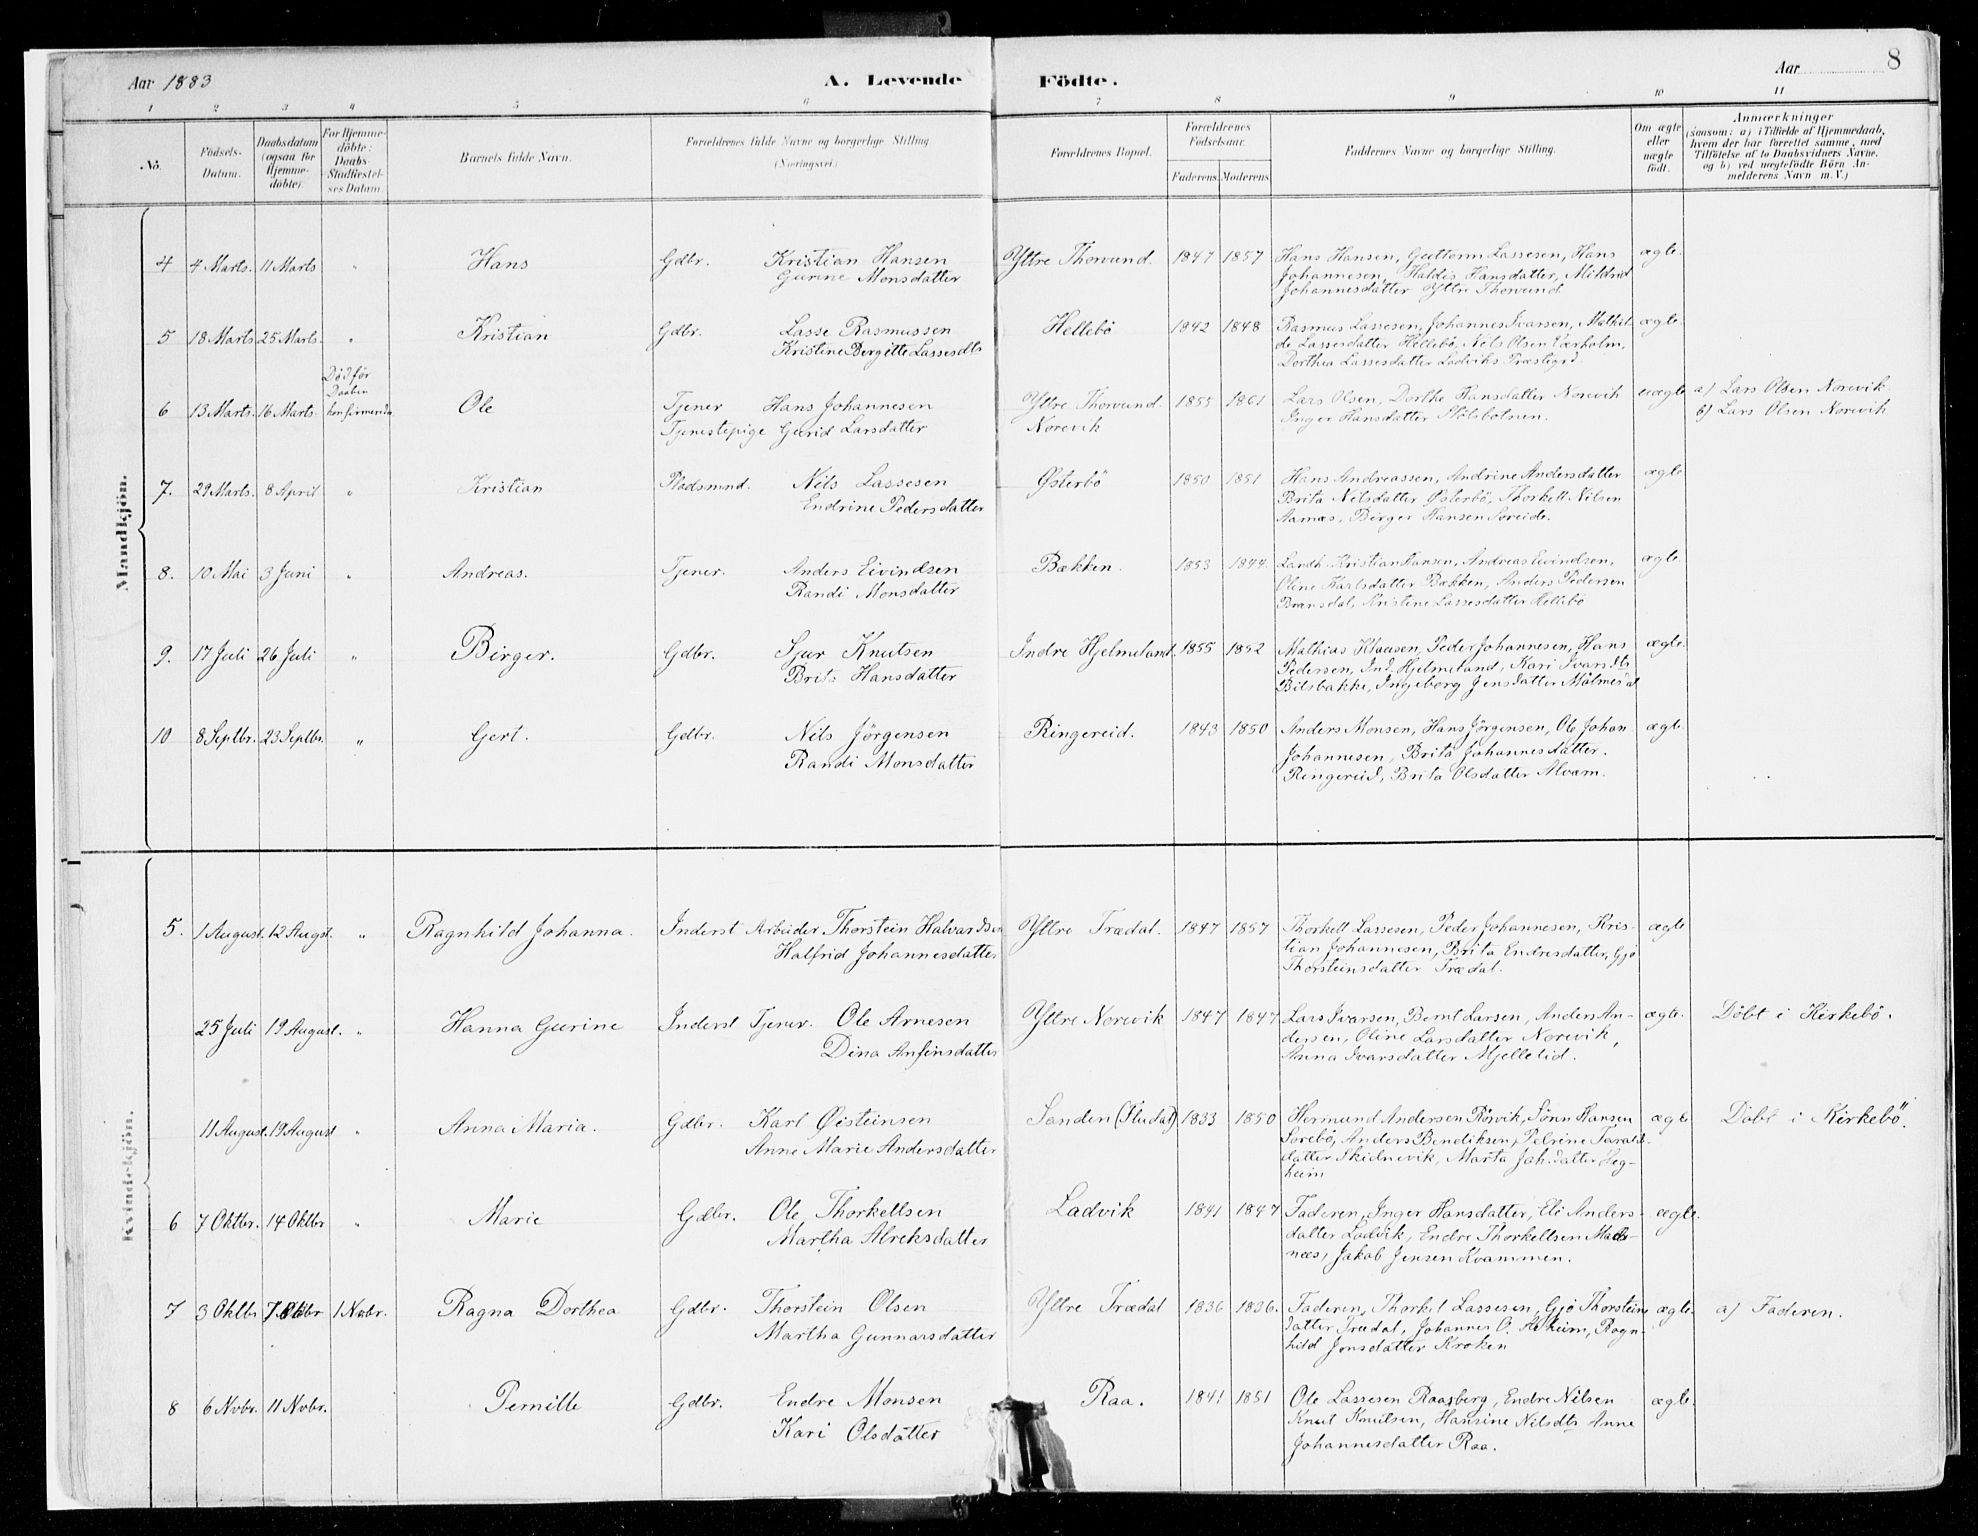 Aar 1883
A. Levende Födte.
Aar 8
1 2 3 4 5 6 7 8 9 10 11
No.
Födsels-Datum.
Daabsdatum (ogsaa for Hjemmedöbte).
For Hjemmedöbte: Daabs-Stadfæstelses Datum.
Barnets fulde Navn.
Forældrenes fulde Navne og borgerlige Stilling (Næringsvei.)
Forældrenes Bopæl.
Forældrenes Födselsaar.
Faderens Moderens
Faddernes Navne og borgerlige Stilling.
Om ægte eller uægte födt.
Anmærkninger (saasom: a) i Tilfælde af Hjemmedaab, hvem der har forrettet samme, med Tilföielse af to Daabsvidners Navne, og b) ved uægtefödte Börn Anmelderens Navn m. V.)
Mandkjön.
4 4 Marts. 11 Marts " Hans Gdbr. Kristian Hansen Yttre Thorvund. 1847 1857 Hans Hansen, Guttorm Lassesen, Hans ægte.
Gurine Monsdatter Johannesen, Haldis Hansdatter, Mildrid
Johannesdatter Yttre Thorvund
5 18 Marts 25 Marts. " Kristian Gdbr. Lasse Rasmussen Hellebö 1842 1848 Rasmus Lassesen, Johannes Ivarsen, Mathil- ægte.
Kristine Bergitte Lassesdtr de Lassesdatter Hellebö, Nils Olsen
Dorthea Lassesdatter Ladviks Præstegrd
Död før
Daaben
6 13 Marts. 16 Marts. konfirmeredes Ole Tjener Hans Johannesen Yttre Thorvund. 1855 1861 Lars Olsen, Dorthe Hansdatter Norevik uægte a) Lars Olsen Norevik
Tjenestepige Gurid Larsdatter Norevik Inger Hansdatter Stölsbotnen. b) Lars Olsen Norevik
7. 29 Marts. 8 April " Kristian Pladsmnd. Nils Lassesen Østerbö 1850 1851 Hans Andreassen, Andrine Andersdatter ægte
Endrine Pedersdatter Brita Nilsdatter Østerbö, Thorkell Nilsen
Aarnæs, Birger Hansen Søreide.
8. 10 Mai 3 Juni " Andreas. Tjener. Anders Eivindsen Bækken. 1853 1844. Landh. Kristian Hansen, Andreas Eivindsen, ægte
Randi Monsdatter Oline Karlsdatter Bækken, Anders Pedersen
Bransdal, Kristine Lassesdatter Hellebö
9. 17 Juli 26 Juli " Birger. Gdbr. Sjur Knutsen Indre Hjelmeland. 1855 1852 Mathias Klausen, Peder Johannesen, Hans ægte.
Brita Hansdatter Pedersen, Ind. Hjelmeland, Kari Ivarsdtr
Bilsbakke, Ingeborg Jensdatter Malmesdal
10 8 Septbr. 23 Septbr. " Gert. Gdbr. Nils Jörgensen Ringereid. 1843 1850 Anders Monsen, Hans Jörgensen, Ole Johan ægte.
Randi Monsdatter Johannesen, Brita Johannesdatter.
Ringereid, Brita Olsdatter Alværn.
Kvindekjön.
5. 1 August. 12 Augst. " Ragnhild Johanna. Inderst Arbeider Thorstein Halvardsen Yttre Trædal. 1847 1857 Thorkell Lassesen, Peder Johannesen, Kris- ægte
Halfrid Johannesdatter tian Johannesen, Brita Endresdatter, Gjö
Thorsteinsdatter Trædal.
25 Juli 19 August. " Hanna Gurine Inderst Tjener. Ole Arnesen Yttre Norevik 1847 1847 Lars Ivarsen, Bernt Larsen, Anders An- ægte. Döbt i Kirkebö.
Dina Anfinsdatter dersen, Oline Larsdatter Norevik,
Anna Ivarsdatter Mjellelid.
11 August. 19 August " Anna Maria. Gdbr. Karl Øisteinsen Sanden (Fludal) 1833 1850 Hermund Andersen Rørvik, Sönn Hansen ægte Döbt i Kirkebö.
Anne Marie Andersdatter Sørebö, Anders Bendiksen, Petrine Taralds
datter Skidnevik, Marta Joh.datter Høg-
heim
6 7 Oktbr. 14 Oktbr " Marie Gdbr. Ole Thorkellsen Ladvik 1841 1847 Faderen, Inger Hansdatter, Eli Anders- ægte.
Martha Alreksdatter datter Ladvik, Endre Thorkellsen Mads-
næs, Jakob Jensen Kvammen.
7 3 Oktbr 7 Oktbr 1 Nvbr. Ragna Dorthea Gdbr. Thorstein Olsen Yttre Trædal 1836 1836. Faderen, Thorkel Lassesen, Gjö Thorsteins ægte. a) Faderen.
Martha Gunnarsdatter datter Trædal, Johannes O. Askeim, Ragn-
hild Jonsdatter Kroken
8 6 Nvbr. 11 Nvbr. Pernille Gdbr. Endre Monsen Raa. 1841 1851 Ole Lassesen Raasberg, Endre Nilsen ægte.
Kari Olsdatter Knut Knutsen, Hansine Nilsdtr Anne
Johannesdatter Raa.